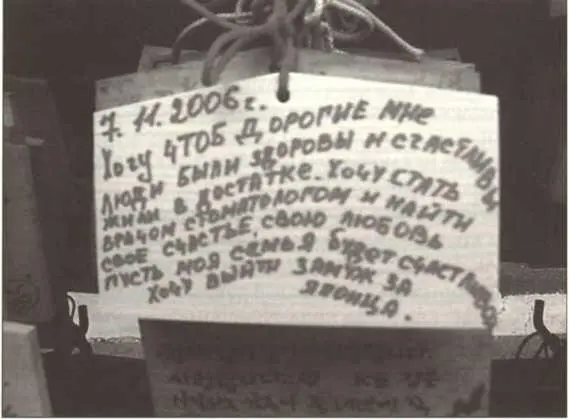 7.11.2006г.
Хочу чтоб дорогие мне
люди были здоровы и счастливы
жили в достатке. Хочу стать
врачом стоматологом и найти
свое счастье, свою любовь
пусть моя семья будет счастливой
Хочу выйти замуж за
японца.